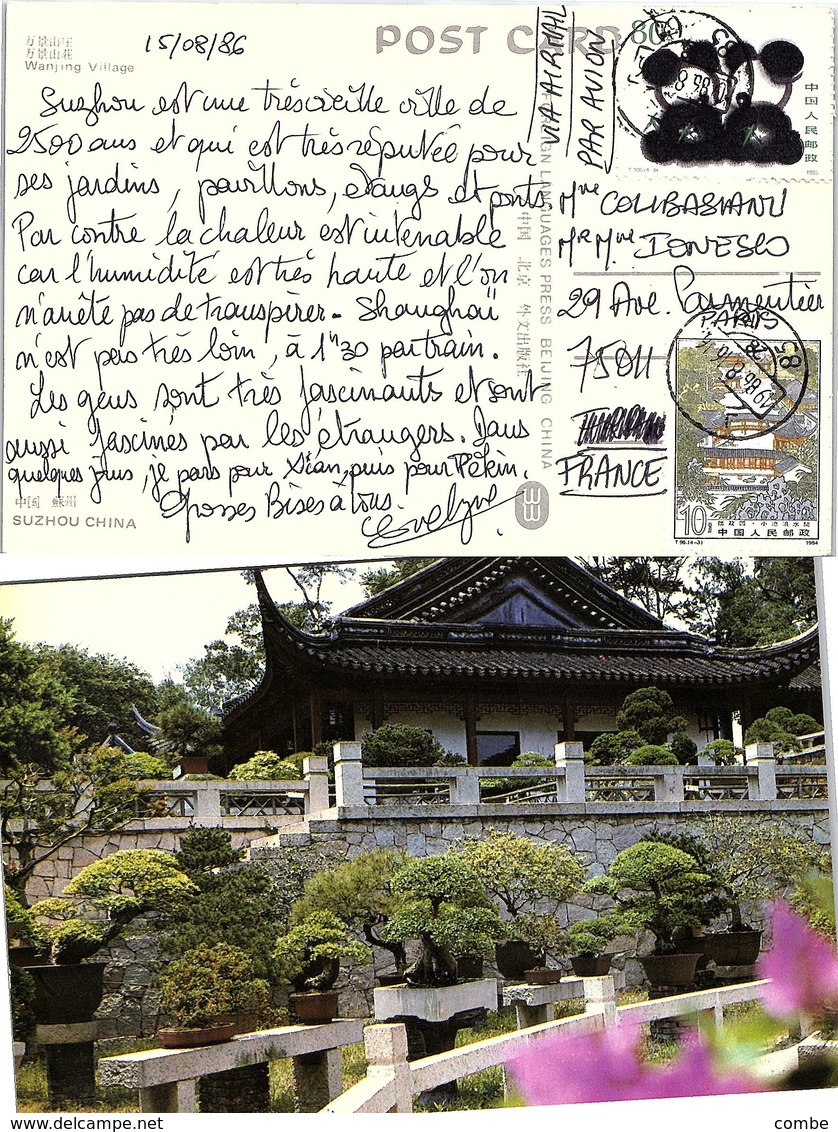 万景山庄
万景山莊
Wanjing Village
15/08/86
POST CARD
Suzhou est une très vieille ville de
2500 ans et qui est très réputée pour
ses jardins, pavillons, étangs et ponts.
Par contre la chaleur est intenable
car l'humidité est très haute et l'on
n'arrête pas de transpirer - Shanghaï
n'est pas très loin, à 1h30 par train.
Les gens sont très fascinants et sont
aussi fascinés par les étrangers. Dans
quelques jours, je pars pour Xian, puis pour Pékin.
Grosses Bises à tous.
Evelyne
中国 蘇州
SUZHOU CHINA
中国 北京 外文出版社
FOREIGN LANGUAGES PRESS BEIJING CHINA
VIA AIR MAIL
PAR AVION
80
中国人民邮政
1985
Mme COLIBASIANU
Mr Mme IONESCO
29 Ave. Parmentier
75011
FRANCE
PARIS
10分
拙政园·小沧浪水院
中国人民邮政
T.96.(4-3)
1984
www.delcampe.net
combe